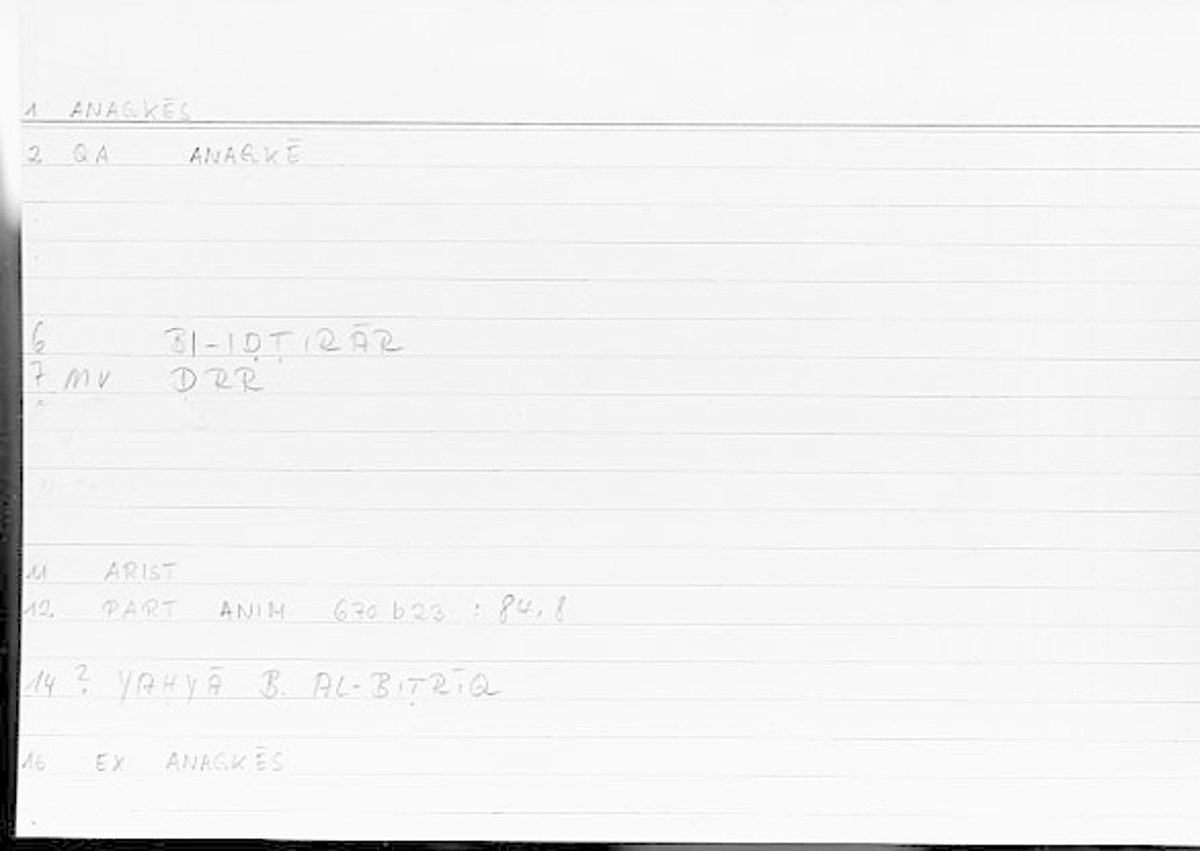 1 ANAGKĒS
2 QA ANAGKĒ
6 BI-IḌṬIRĀR
7 MV ḌRR
11 ARIST
12 PART ANIM 670 b23 : 84,8
14 ? YAḤYĀ B. AL-BIṬRĪQ
16 EX ANAGKĒS